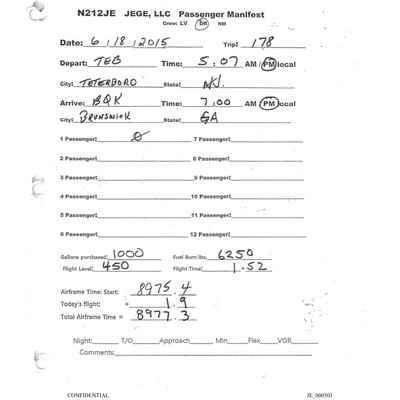 N212JE JEGE, LLC Passenger Manifest
Crew: LV DR NM
Date: 6 / 18 / 2015 Trip: 178
Depart: TEB Time: 5:07 AM / PM local
City: TETERBORO State: NJ.
Arrive: BQK Time: 7:00 AM / PM local
City: BRUNSWICK State: GA
1 Passenger: 0 7 Passenger:
2 Passenger: 8 Passenger:
3 Passenger: 9 Passenger:
4 Passenger: 10 Passenger:
5 Passenger: 11 Passenger:
6 Passenger: 12 Passenger:
Gallons purchased: 1000 Fuel Burn lbs. 6250
Flight Level: 450 Flight Time: 1.52
Airframe Time: Start: 8975.4
Today's flight: = 1.9
Total Airframe Time = 8977.3
Night: T/O Approach Min Flex VOR
Comments:
CONFIDENTIAL JE_000503